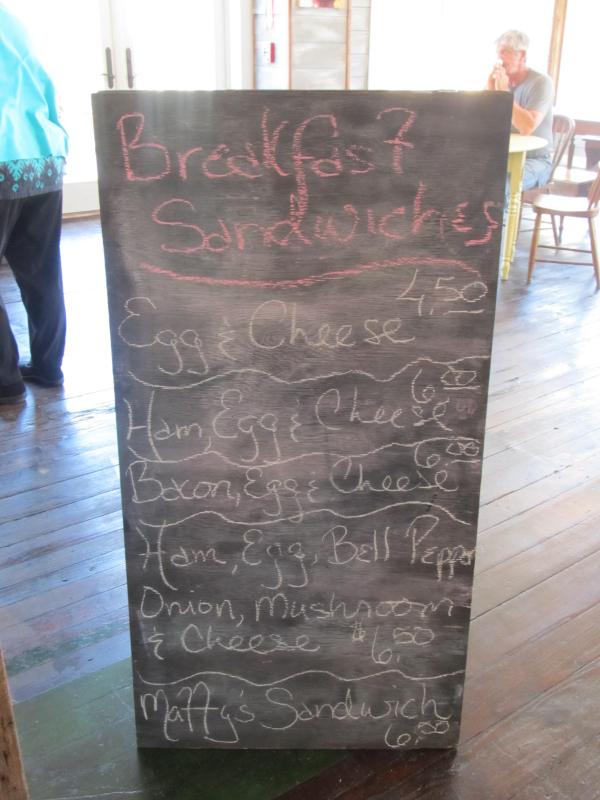 Breakfast
Sandwiches
4,50
Egg & Cheese
6,00
Ham, Egg & Cheese
6,00
Bacon, Egg & Cheese
Ham, Egg, Bell Pepper
Onion, Mushroom
& Cheese $6,50
Matty's Sandwich
6,50